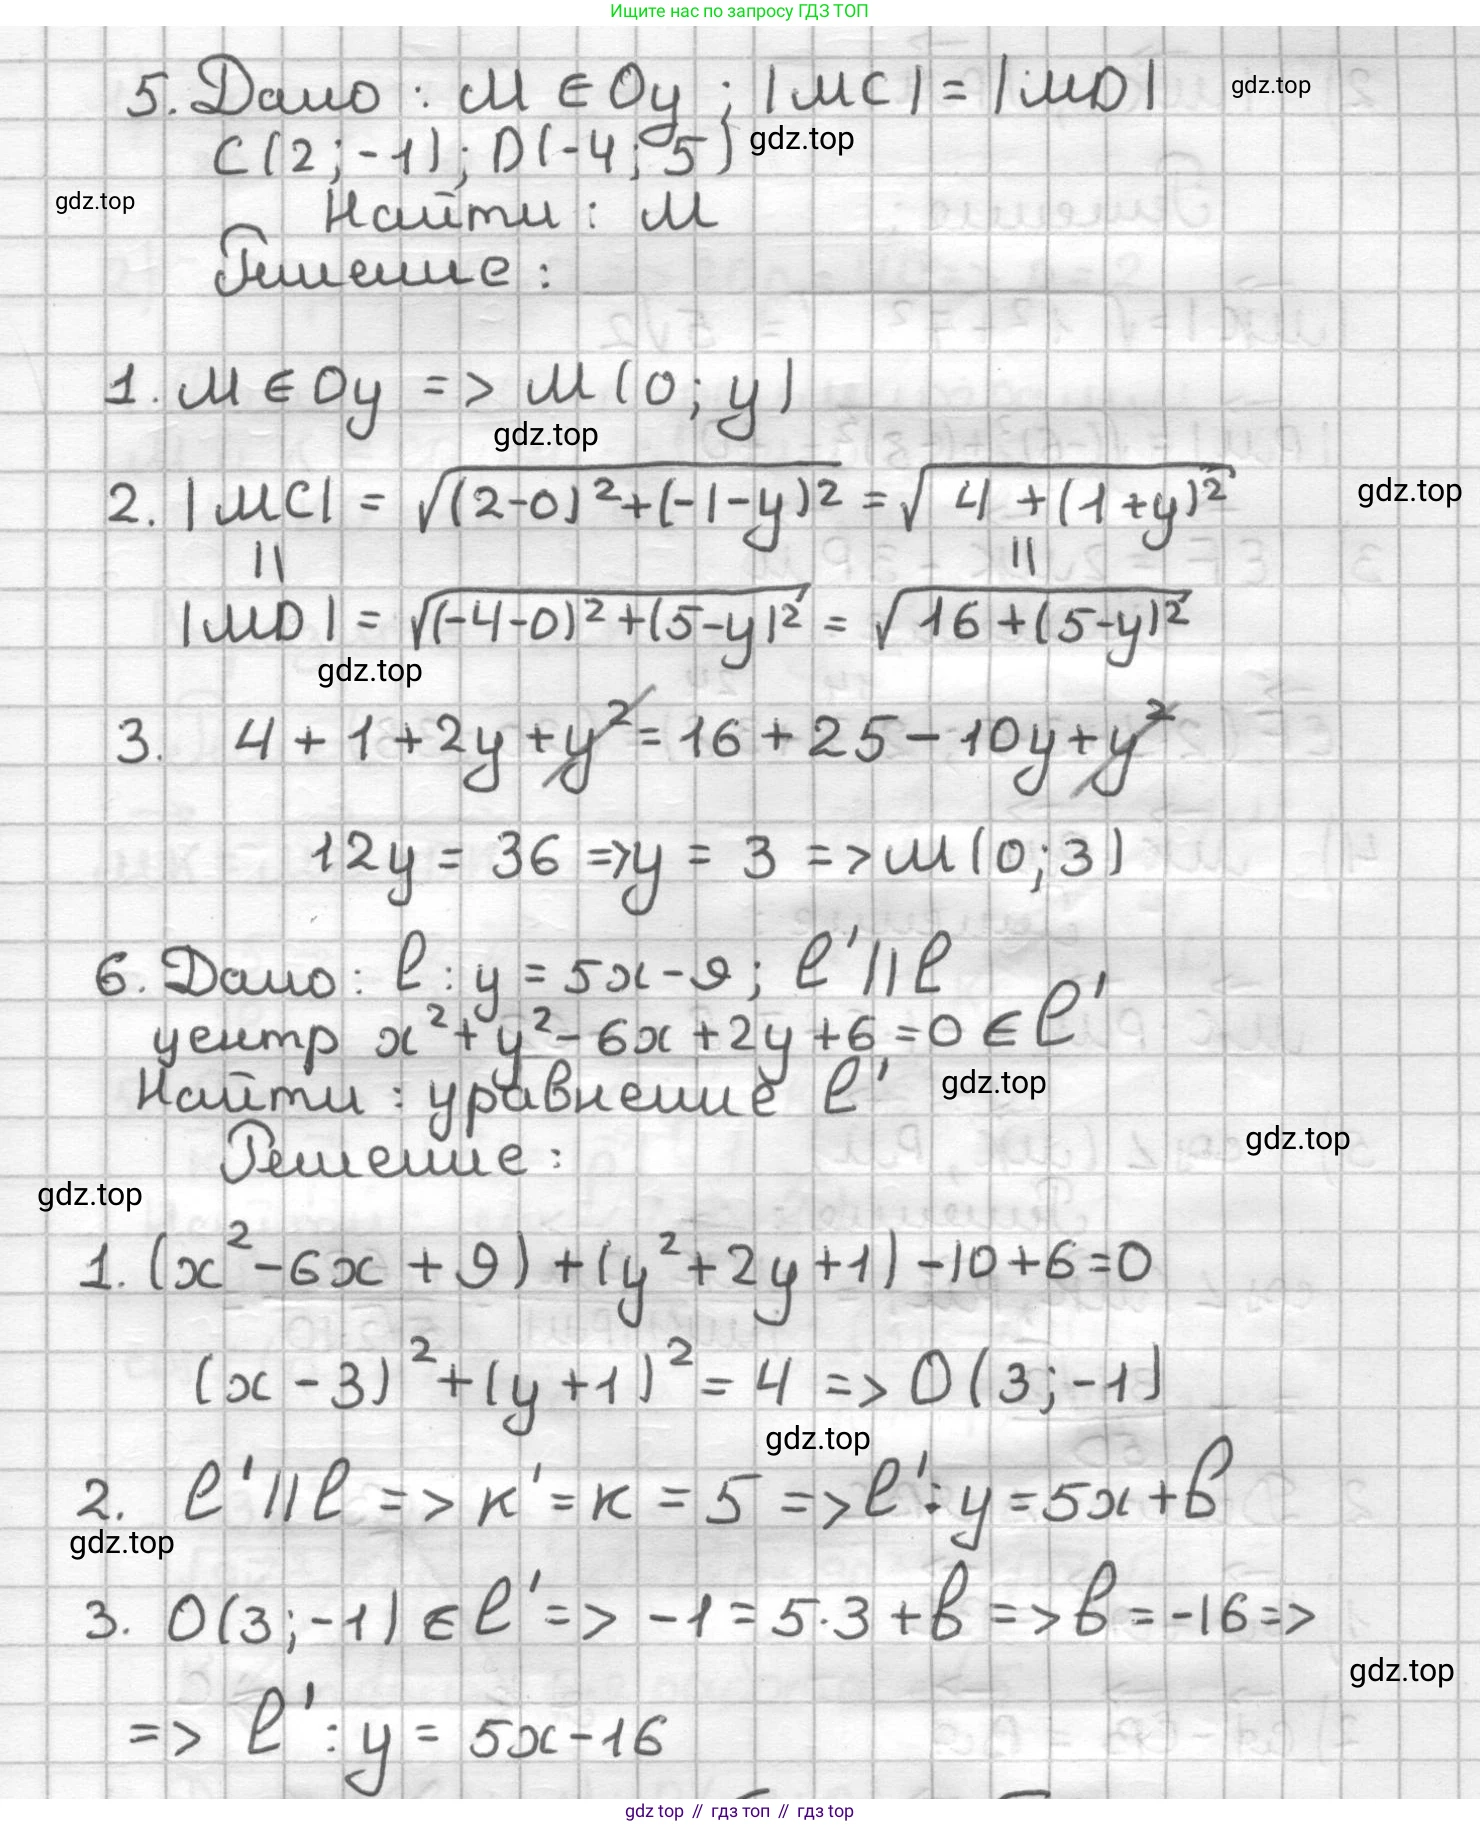 Ищите нас по запросу ГДЗ ТОП
5. Дано: M ∈ Oy; |MC| = |MD| gdz.top
C(2; -1); D(-4; 5) gdz.top
gdz.top Найти: M
Решение:
1. M ∈ Oy => M(0; y)
gdz.top
2. |MC| = √((2-0)²+(-1-y)²) = √(4+(1+y)²) gdz.top
|| ||
|MD| = √((-4-0)²+(5-y)²) = √(16+(5-y)²)
gdz.top
3. 4+1+2y+y² = 16+25-10y+y²
12y = 36 => y = 3 => M(0; 3)
6. Дано: l: y = 5x-9; l' || l
центр x²+y²-6x+2y+6=0 ∈ l'
Найти: уравнение l' gdz.top
gdz.top
Решение:
gdz.top
1. (x²-6x+9)+(y²+2y+1)-10+6=0
(x-3)²+(y+1)²=4 => O(3; -1)
gdz.top
2. l' || l => к' = к = 5 => l': y = 5x+b
gdz.top
3. O(3; -1) ∈ l' => -1 = 5·3+b => b = -16 =>
gdz.top
=> l': y = 5x-16
gdz top // гдз топ // гдз top